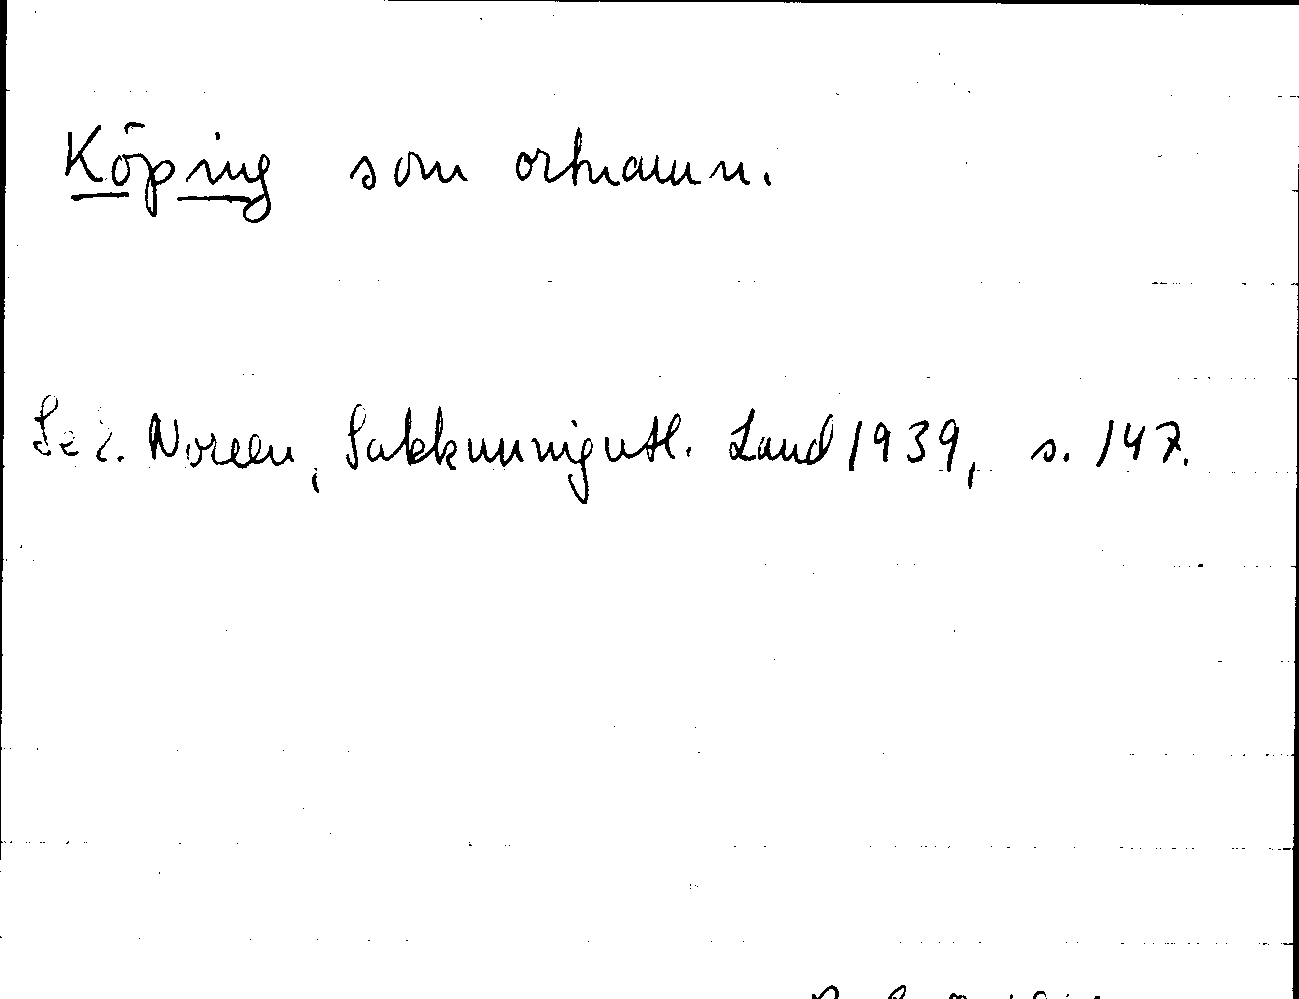 Köping som ortnamn.
Se E. Noreen, Sakkunnigutl. Lund 1939, s. 147.